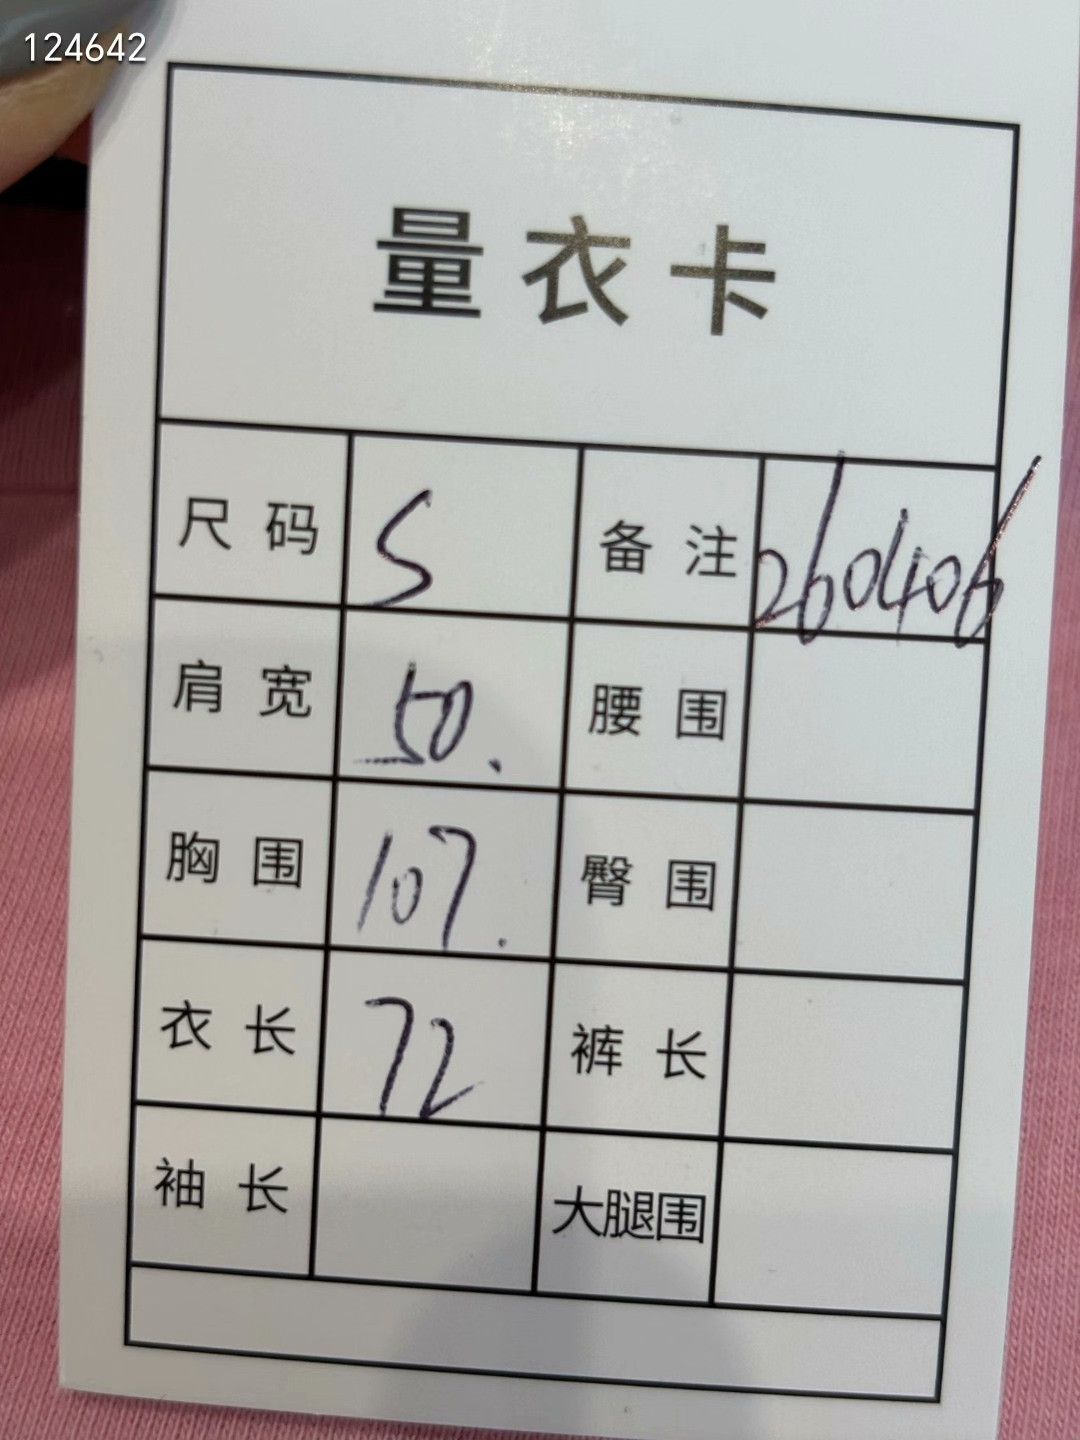 124642
量衣卡
尺码 S 备注 260406
肩宽 50. 腰围
胸围 107. 臀围
衣长 72 裤长
袖长 大腿围